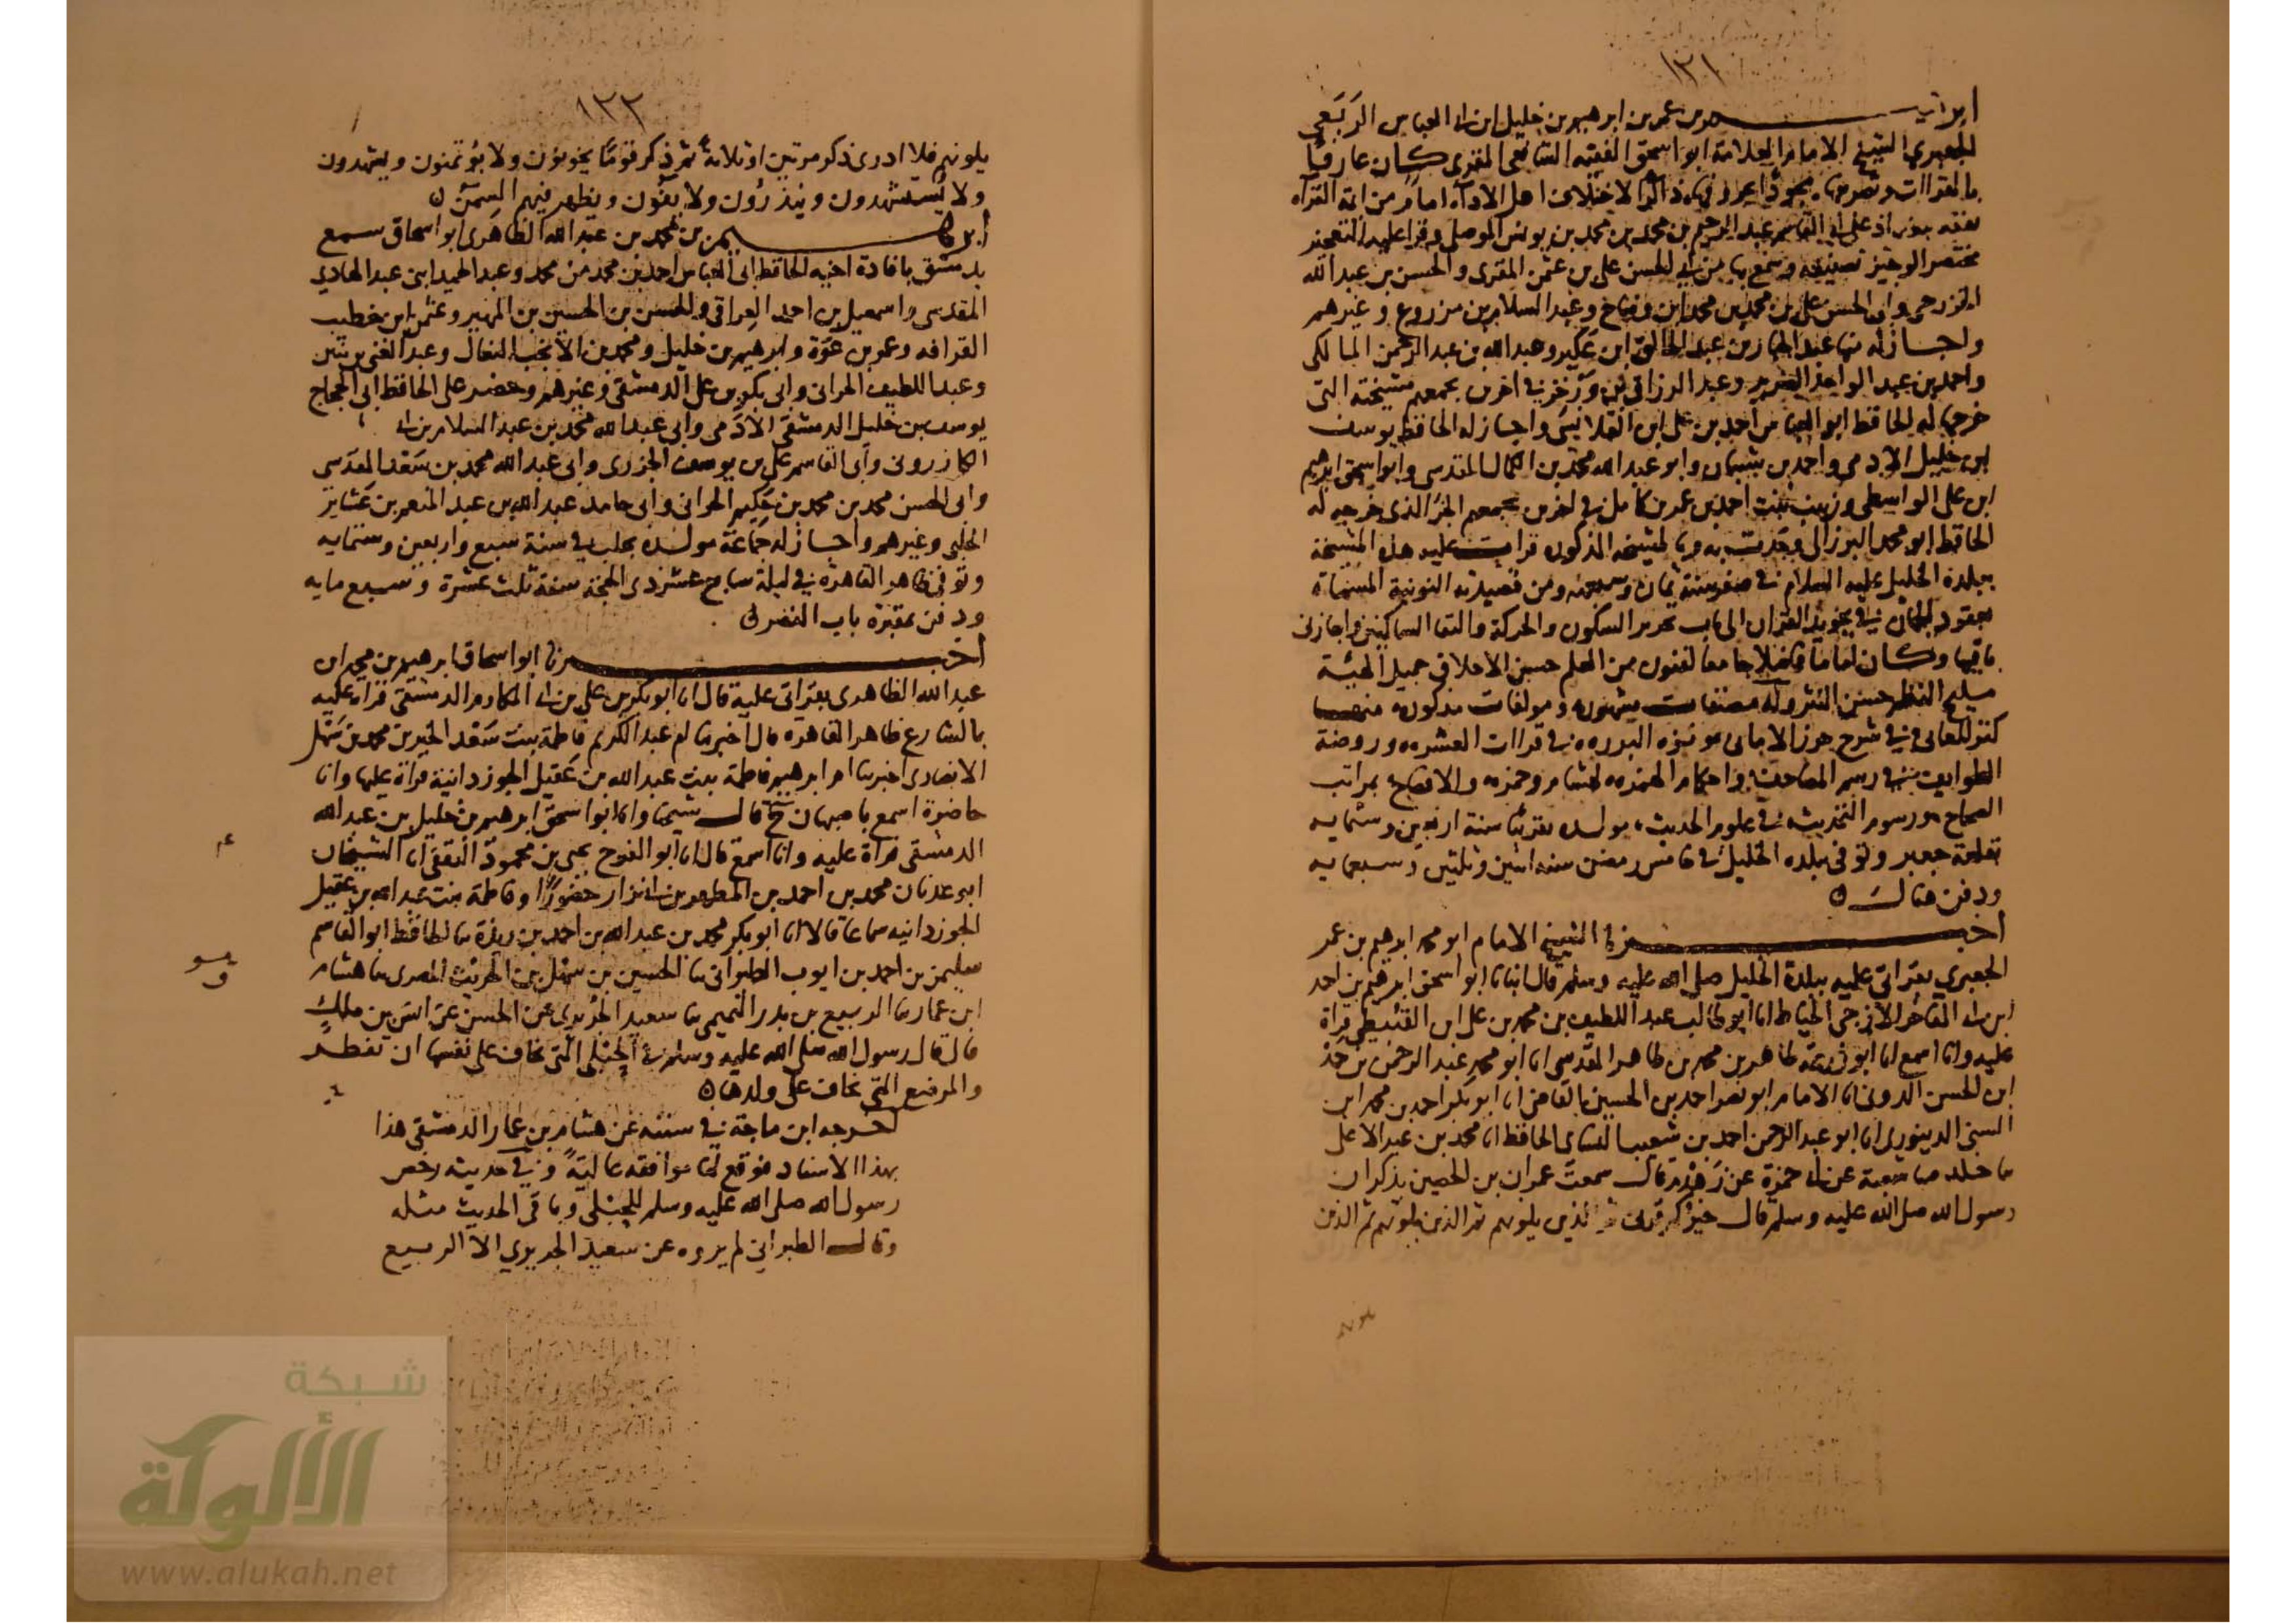 ١٢١
ابراهيم بن عمر بن ابرهيم بن خليل ابن ابي العباس الربعي
الجعبري الشيخ الامام العلامة ابو اسحق الفقيه الشافعي المقرئ كان عارفا
بالقراات اهل الاداء امام من ائمة القراء
تفقه ببغداد على ابي القاسم عبد الرحيم بن محمد بن محمد بن يونس الموصلي وقرا عليه التعجيز
مختصر الوجيز تصنيفه وسمع بها من ابي الحسن علي بن عثمن المقرى والحسن بن عبد الله
وابي الحسن علي بن محمد بن محمد ابن وضاح وعبد السلام بن مزروع وغيرهم
واجاز له بها عبد الجبار بن عبد الخالق ابن عكبر وعبد الله بن عبد الرحمن المالكي
واحمد بن عبد الواحد وعبد الرزاق في اخرين يجمعهم مشيخته التي
خرجها له الحافظ ابو العباس احمد بن علي ابن القلانسي واجاز له الحافظ يوسف
ابن خليل الادمي واحمد بن شيبان وابو عبد الله محمد بن الكمال المقدسي وابو اسحق ابرهيم
ابن علي الواسطي وزينب بنت احمد بن عمر بن كامل في اخرين يجمعهم الجزء الذي خرجه له
الحافظ ابو محمد البرزالي المذكور قرات عليه هذه المشيخة
ببلدة الخليل عليه السلام في صفر سنة ثمان ومن قصيدته النونية المسماة
بعقود الجمان في تجويد القران الى باب تحرير السكون والحركة والتقا الساكنين واجازني
باقيها وكان اماما فاضلا جامعا لفنون من العلم حسن الاخلاق جميل الهيئة
مليح النظر حسن النثر وله مصنفات مشهوره ومولفات مذكوره منها
كنز المعاني في شرح حرز الاماني ونزهة البرره في قراات العشره وروضة
الطرايف في رسم المصاحف واحكام الهمزه لهشام وحمزه والافصاح بمراتب
الصحاح ورسوم التحديث في علوم الحديث مولده تقريبا سنة اربعين وستمايه
بقلعة جعبر وتوفي ببلده الخليل في خامس رمضن سنه اثنين وثلثين وسبعمايه
ودفن هنالك ٥
اخبرنا الشيخ الامام ابو محمد ابرهيم بن عمر
الجعبري بقراتي عليه ببلدة الخليل صلى الله عليه وسلم قال انبانا ابو اسحق ابرهيم بن احمد
الازجي الخياط انا ابو طالب عبد اللطيف بن محمد بن علي ابن القبيطي قراة
عليه وانا اسمع انا ابو زرعة طاهر بن محمد بن طاهر المقدسي انا ابو محمد عبد الرحمن بن حمد
ابن الحسن الدوني انا الامام ابو نصر احمد بن الحسين القاضي انا ابو بكر احمد بن محمد ابن
السني الدينوري انا ابو عبد الرحمن احمد بن شعيب النساى الحافظ انا محمد بن عبد الاعلى
ثنا خالد ثنا شعبة عن ابي حمزة عن زهدم قال سمعت عمران بن الحصين يذكر ان
رسول الله صلى الله عليه وسلم قال خيركم قرني ثم الذين يلونهم ثم الذين يلونهم ثم الذين
يلونهم
١٢٢
يلونهم فلا ادرى ذكر مرتين او ثلاثة ثم ذكر قوما يخونون ولا يؤتمنون ويشهدون
ولا يستشهدون وينذرون ولا يفون ويظهر فيهم السمن ٥
ابرهيم بن محمد بن عبد الله الظاهرى ابو اسحاق سمع
بدمشق بافادة اخيه الحافظ ابي العباس احمد بن محمد من محمد وعبد الحميد ابني عبد الهادي
المقدسي واسمعيل بن احمد العراقي والحسن بن الحسين بن المهير وعثمن ابن خطيب
القرافه وعمر بن عوة وابرهيم بن خليل ومحمد بن الانجب النعال وعبد الغني بن بنين
وعبد اللطيف الحراني وابي بكر بن علي الدمشقي وغيرهم وحضر على الحافظ ابي الحجاج
يوسف بن خليل الدمشقي الادمى وابي عبد الله محمد بن عبد السلام بن ابي
الكازروني وابي القاسم علي بن يوسف الجزرى وابي عبد الله محمد بن سعد المقدسي
وابي الحسن محمد بن محمد بن حكيم الحراني وابي حامد عبد الله بن عبد المنعم بن عشاير
الحلبي وغيرهم واجاز له جماعة مولده بحلب في سنة سبع واربعين وستمايه
وتوفي بظاهر القاهرة في ليلة سابع عشر ذي الحجة سنة ثلث عشرة وسبع مايه
ودفن بمقبرة باب النصر ٥
اخبرنا ابو اسحاق ابرهيم بن محمد ابن
عبد الله الظاهرى بقراتي عليه قال انا ابو بكر بن علي بن ابي المكارم الدمشقي قراه عليه
بالشارع ظاهر القاهره قال اخبرتنا ام عبد الكريم فاطمة بنت سعد الخير بن محمد بن سهل
الانصارى اخبرتنا ام ابرهيم فاطمة بنت عبد الله بن عقيل الجوزدانية قراة عليها وانا
حاضرة اسمع باصبهان ح قال شيخنا وانا ابو اسحق ابرهيم بن خليل بن عبد الله
الدمشقي قراة عليه وانا اسمع قال انا ابو الفرج يحيى بن محمود الثقفي انا الشيخان
ابو عدنان محمد بن احمد بن المطهر بن ابي نزار حضورا وفاطمة بنت عبد الله بن عقيل
الجوزدانيه سماعا قالا انا ابو بكر محمد بن عبد الله بن احمد بن ريذة ثنا الحافظ ابو القاسم
سليمن بن احمد بن ايوب الطبراني ثنا الحسين بن سهل بن الحريث المصرى ثنا هشام
ابن عمار ثنا الربيع بن بدر التميمي ثنا سعيد الجريري عن الحسن عن انس بن ملك
قال قال رسول الله صلى الله عليه وسلم في الحبلى التي تخاف على نفسها ان تفطر
والمرضع التي تخاف على ولدها ٥
اخرجه ابن ماجة في سننه عن هشام بن عمار الدمشقي هذا
بهذا الاسناد فوقع لنا موافقه عالية وفي حديثه رخص
رسول الله صلى الله عليه وسلم للحبلى وباقي الحديث مثله
وقال الطبراني لم يروه عن سعيد الجريري الا الربيع
شبكة
الألوكة
www.alukah.net